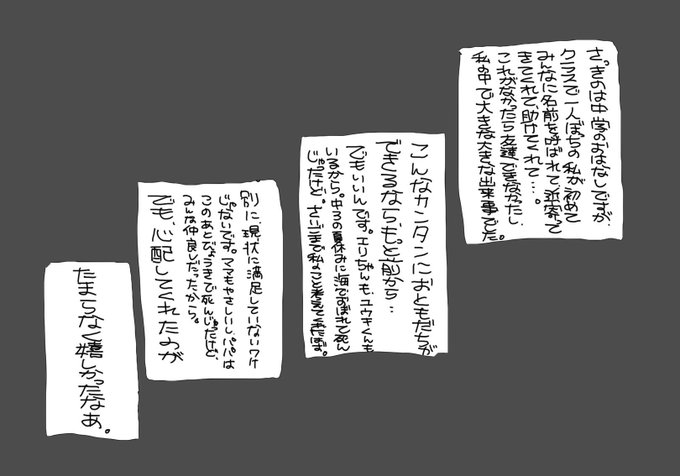 さっきのは中学のおはなしですが、
クラスで一人ぼっちの私が初めて
みんなに名前を呼ばれて、近寄って
きてくれて、助けてくれて…。
これがなかったら友達できなかったし、
私の中で大きな大きな出来事でした。
こんなカンタンにおともだちが
できるなら、もっと前から…
でもいいんです。エリちゃんも、ユウキくんも
いるから。中3の夏休みに海でおぼれて死ん
じゃったけど。さいごまで私のこと考えてくれたはず。
別に現状に満足していないワケ
じゃないです。ママもやさしいし、パパは
このあとびょうきで死んじゃったけど、
みんな仲良しだったから。
でも、心配してくれたのが
たまらなく嬉しかったなぁ。